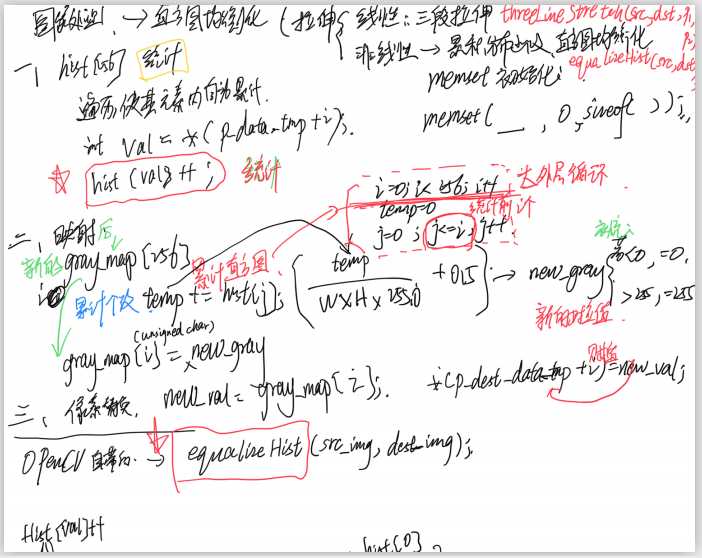 图像处理 → 直方图均衡化 (拉伸 { 线性: 三段拉伸 threeLineStretch(src, dst,
非线性 → 累积分布 直方图均衡化 equalizeHist(src, dst
一、hist[256] 统计
memset 初始化:
遍历 使其元素内自动累计.
int val = *(p_data_tmp+i);
memset( __ , 0, sizeof( ));
hist[val]++; 统计
i=0; i<256; i++ 大外层循环.
temp=0 统计前i个
j=0; j<=i; j++
二、映射后
新的 gray_map[256]
累计直方图 ( temp / W×H × 255.0 + 0.5 ) → new_gray { 若<0, =0. >255, =255
累计个数 temp += hist[j];
新的灰度值.
(unsigned char)
gray_map[i] = new_gray
new_val = gray_map[i]; *(p_dest_data_tmp+i)=new_val; 赋值
三、像素替换.
OpenCV 自带的. → equalizeHist(src_img, dest_img);
Hist[val]++
hist[0]